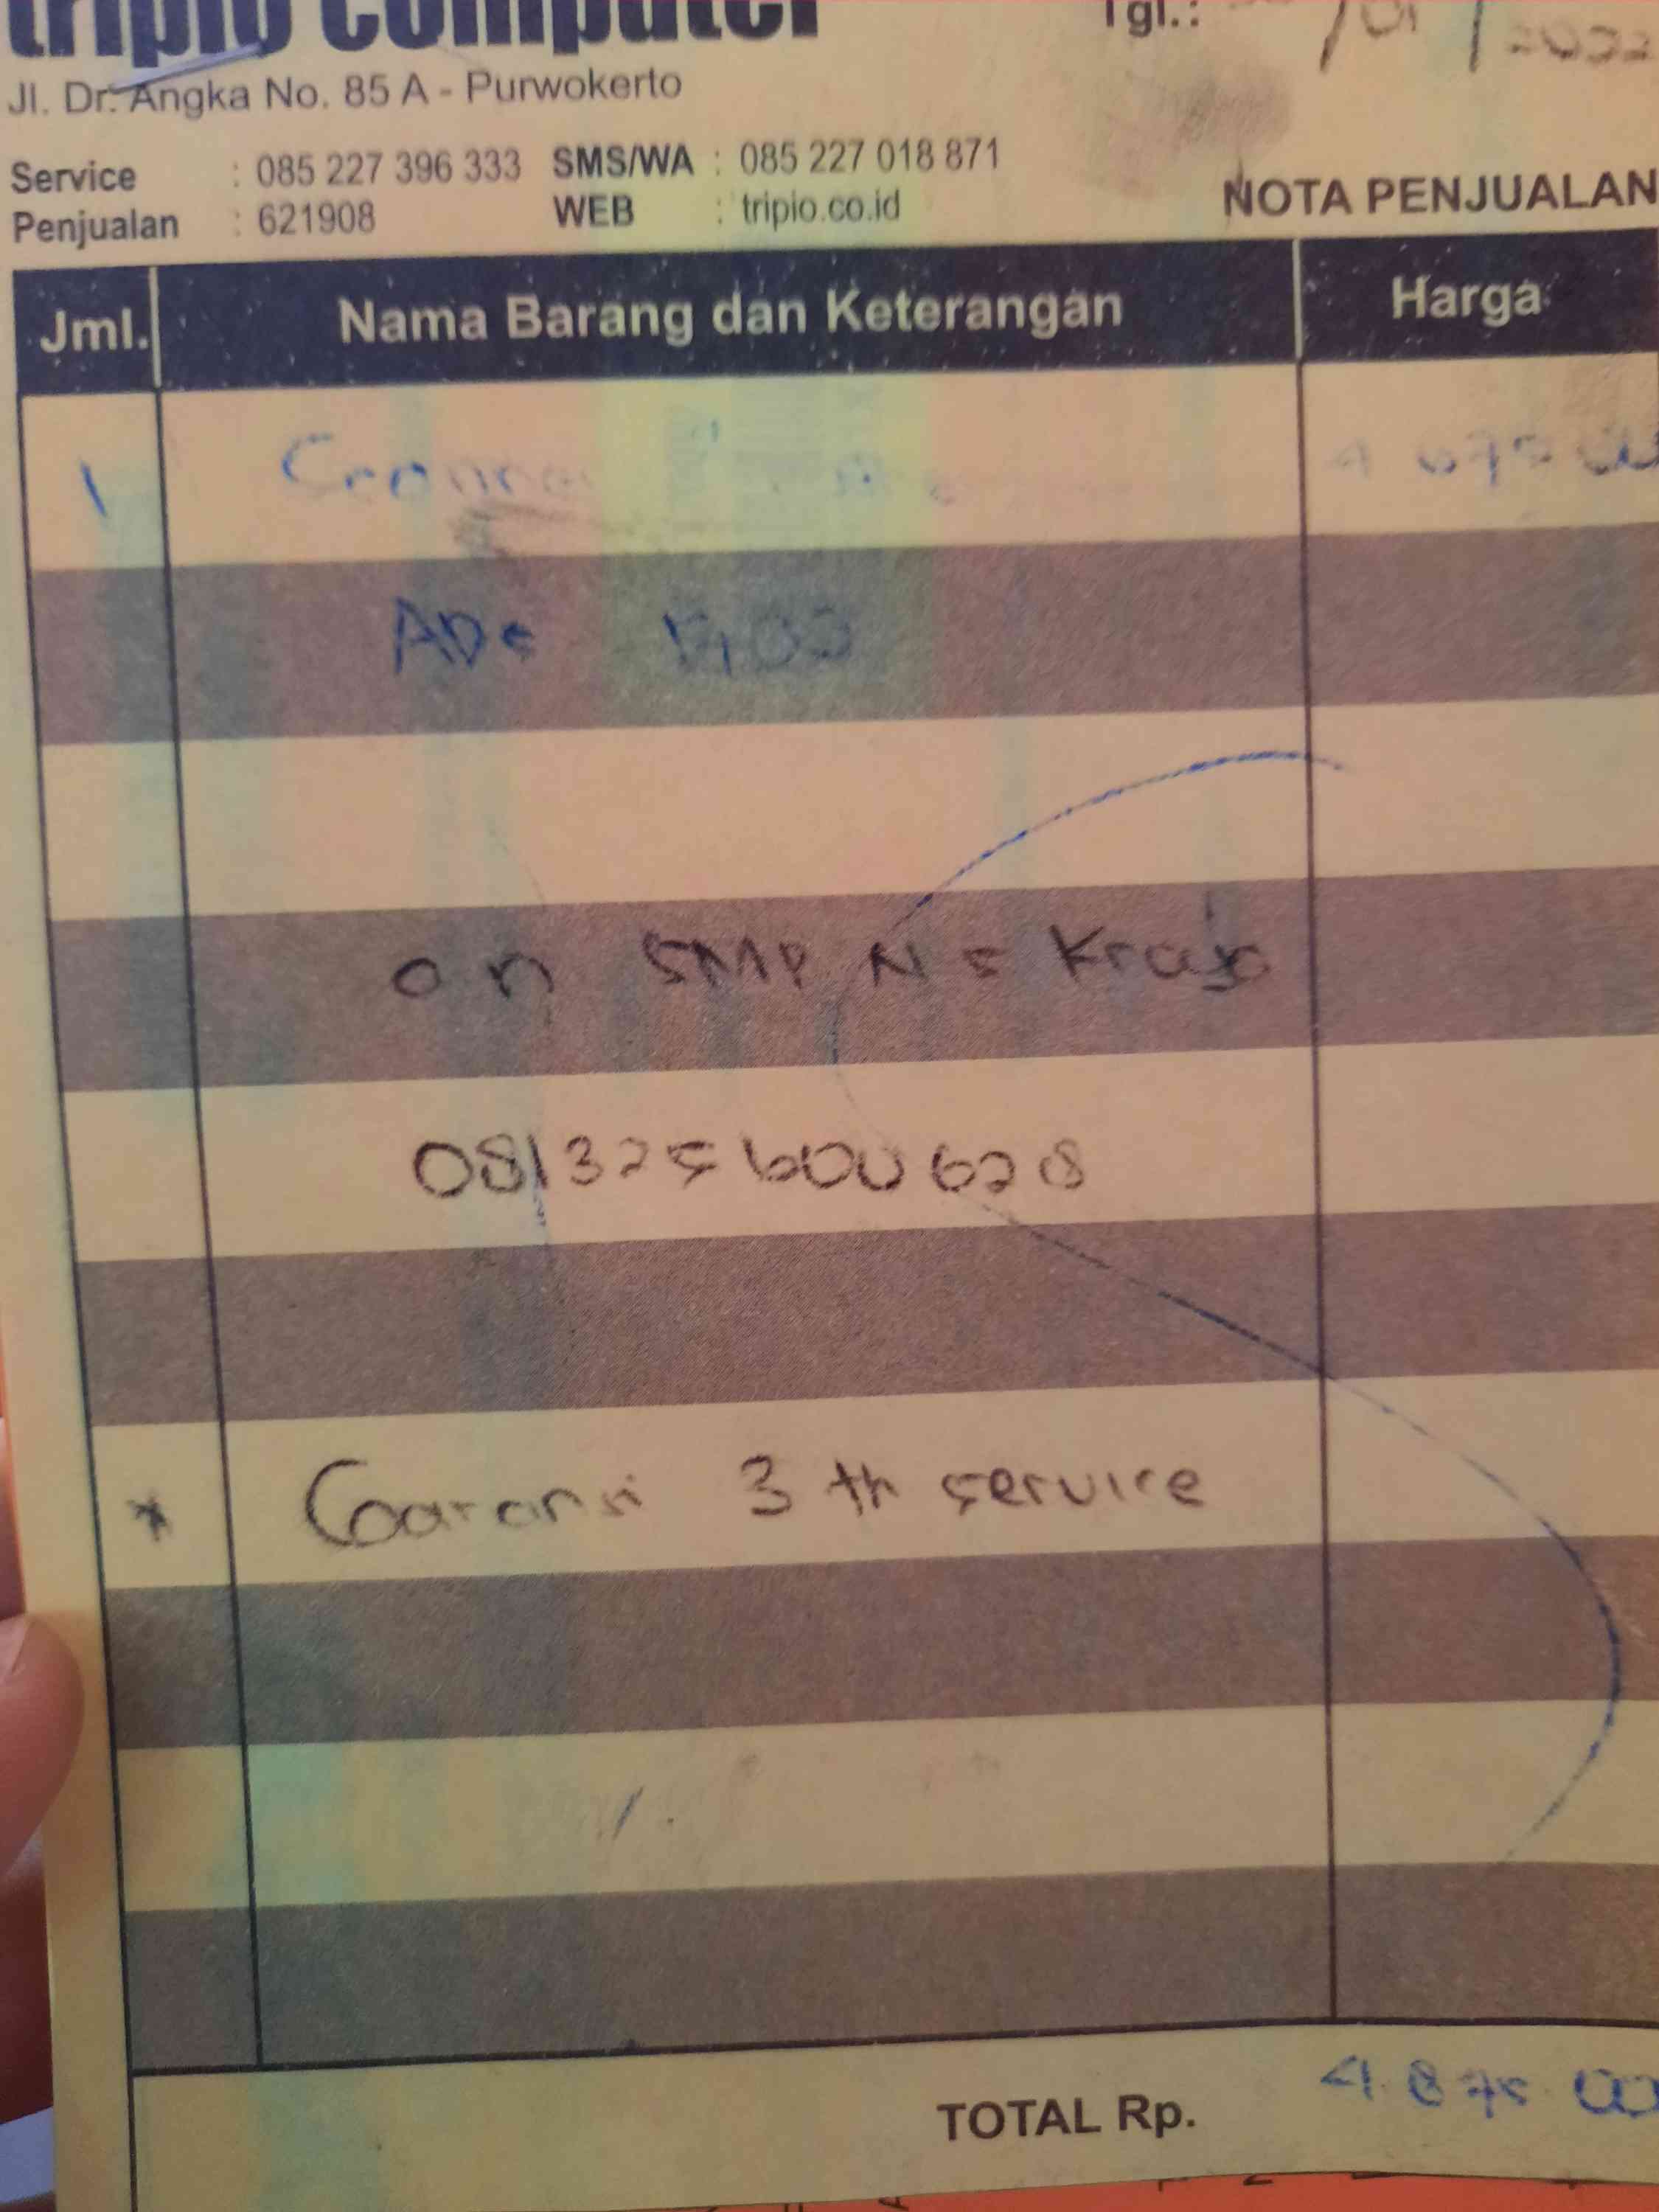 tripio computer
Tgl.: /01/2022
Jl. Dr. Angka No. 85 A - Purwokerto
Service : 085 227 396 333 SMS/WA : 085 227 018 871
Penjualan : 621908 WEB : tripio.co.id
NOTA PENJUALAN
Jml. Nama Barang dan Keterangan Harga
1
on SMP N 5 Kraja
081325600628
* Garansi 3 th service
TOTAL Rp. 4.875.00